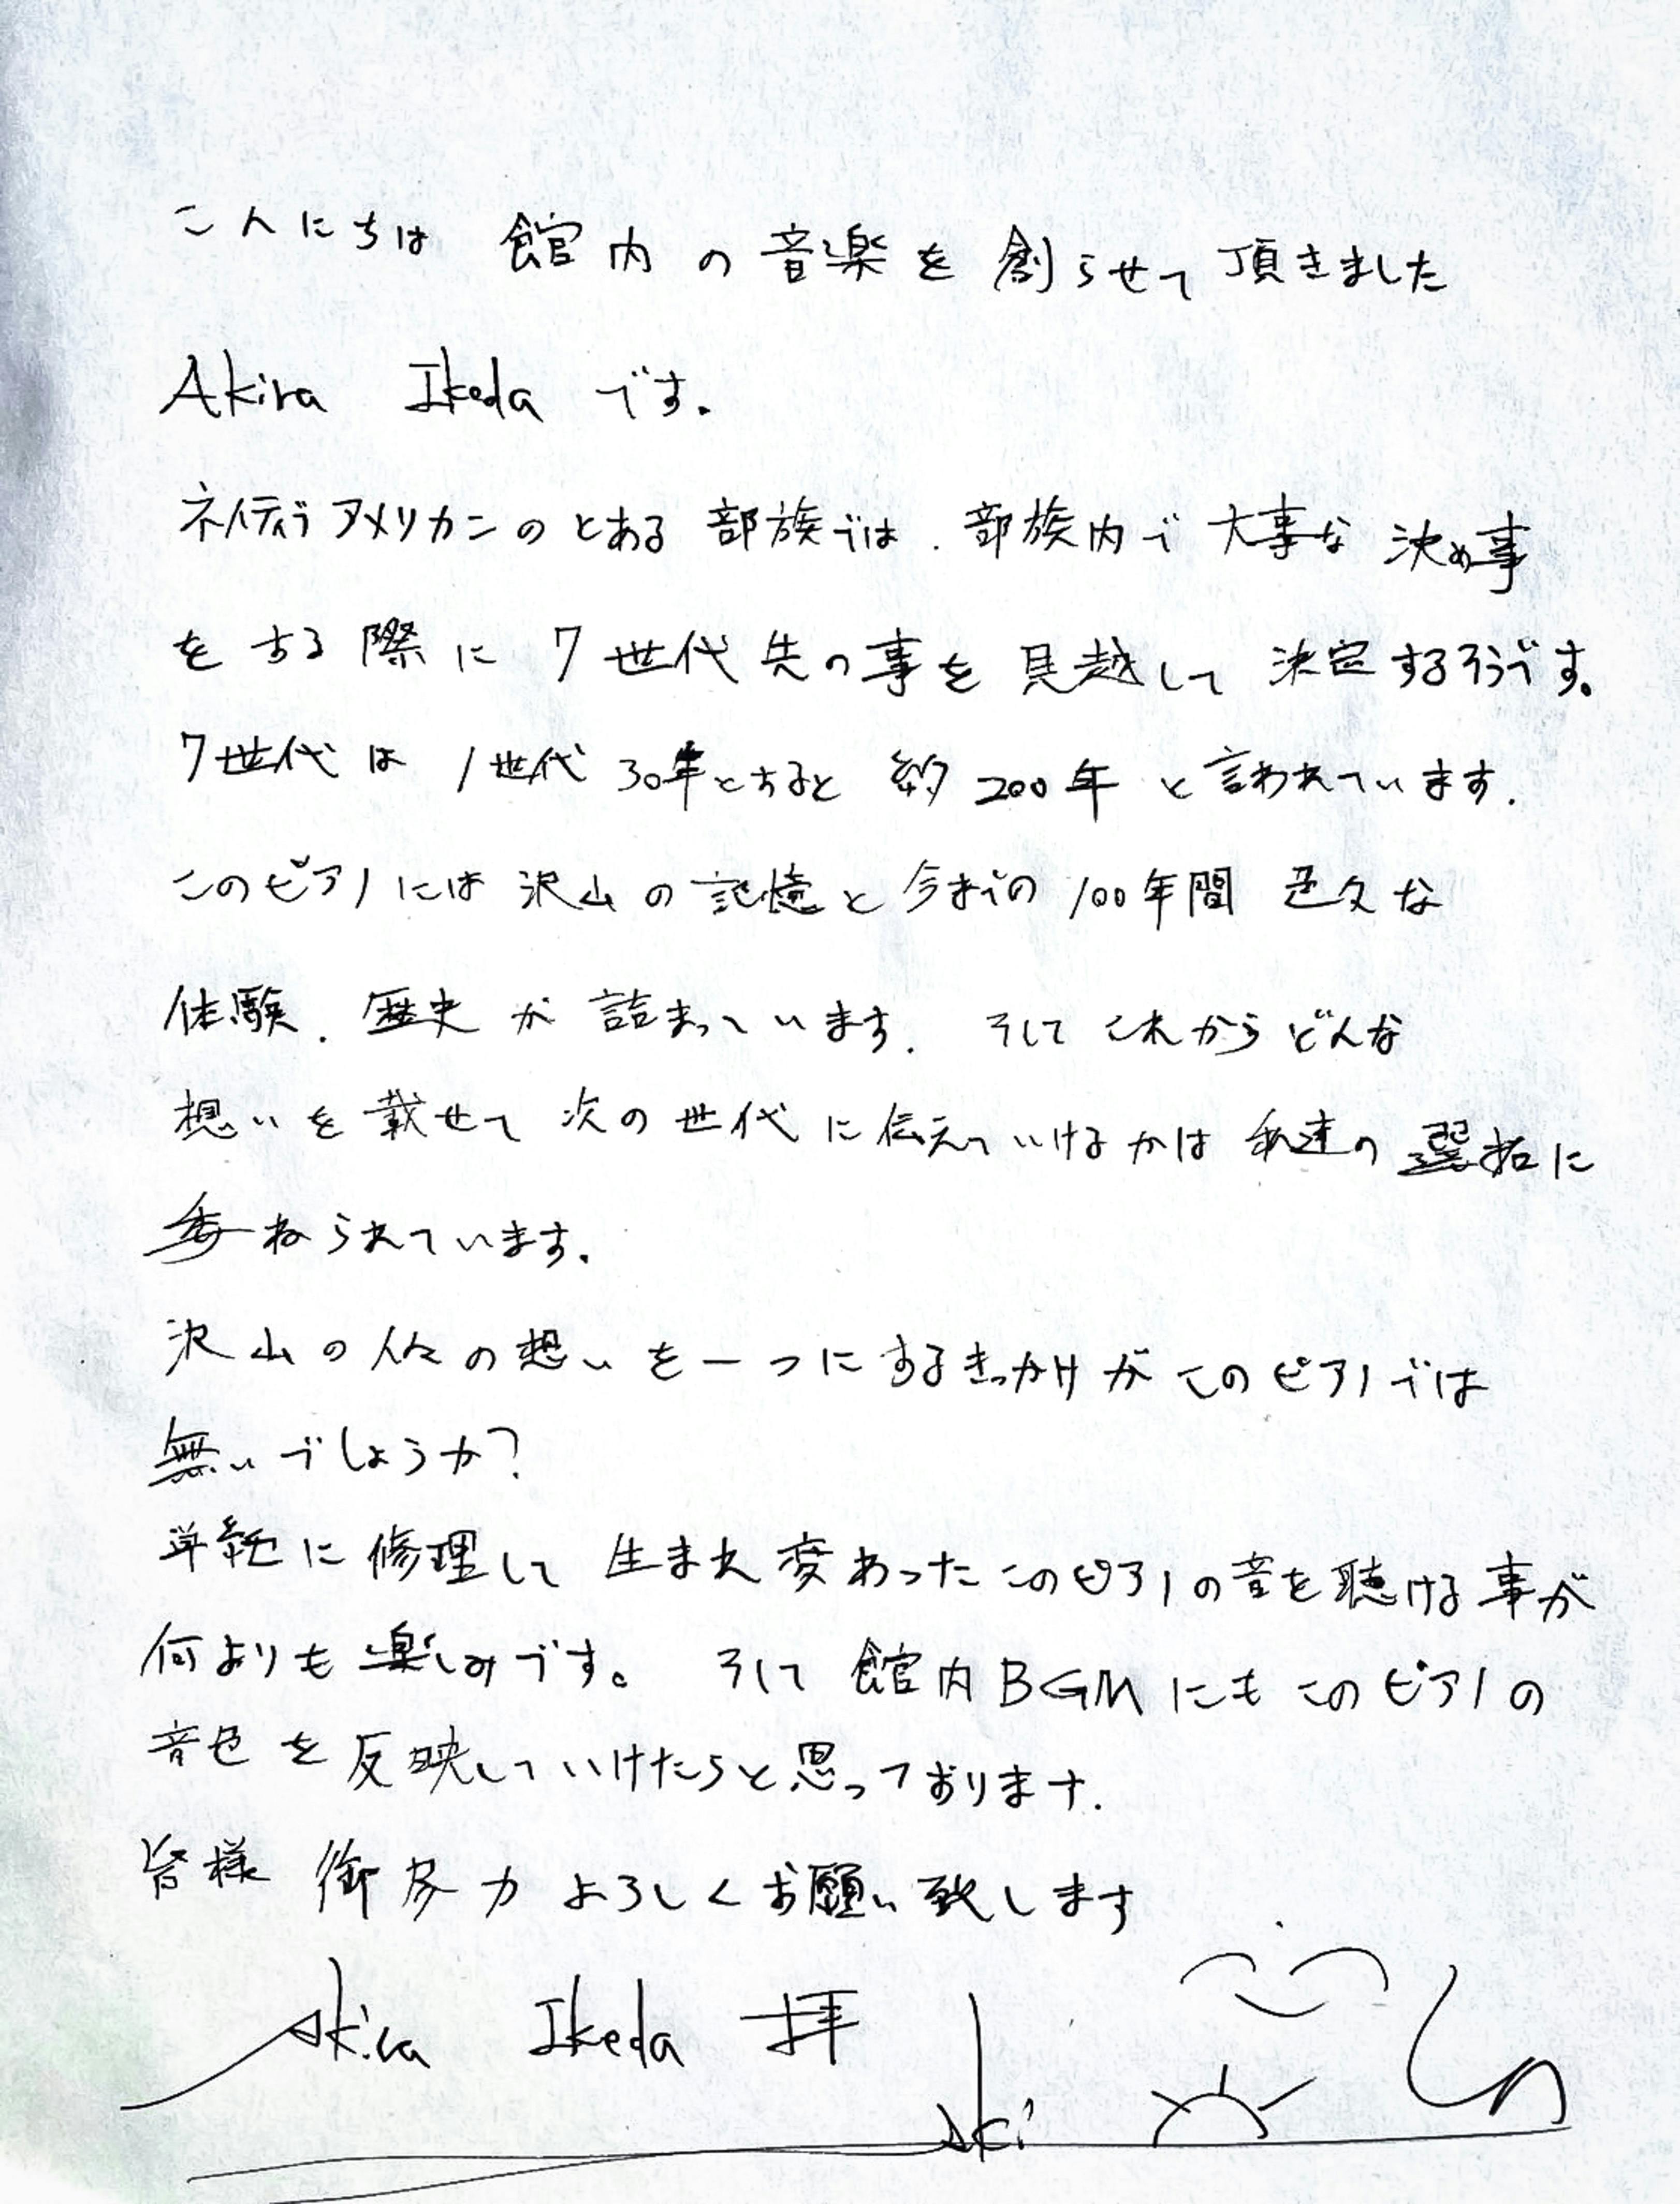 こんにちは 館内の音楽を創らせて頂きました
Akira Ikeda です。
ネイティブアメリカンのとある部族では、部族内で大事な決め事
をする際に7世代先の事を見越して決定するそうです。
7世代は1世代30年とすると約200年と言われています.
このピアノには沢山の記憶と今までの100年間色々な
体験、歴史が詰まっています. そしてこれからどんな
想いを載せて次の世代に伝えていけるかは私達の選択に
委ねられています.
沢山の人々の想いを一つにするきっかけがこのピアノでは
無いでしょうか?
単純に修理して生まれ変わったこのピアノの音を聴ける事が
何よりも楽しみです。 そして館内BGMにもこのピアノの
音色を反映していけたらと思っております.
皆様 御尽力よろしくお願い致します
Akira Ikeda 拝
Aki